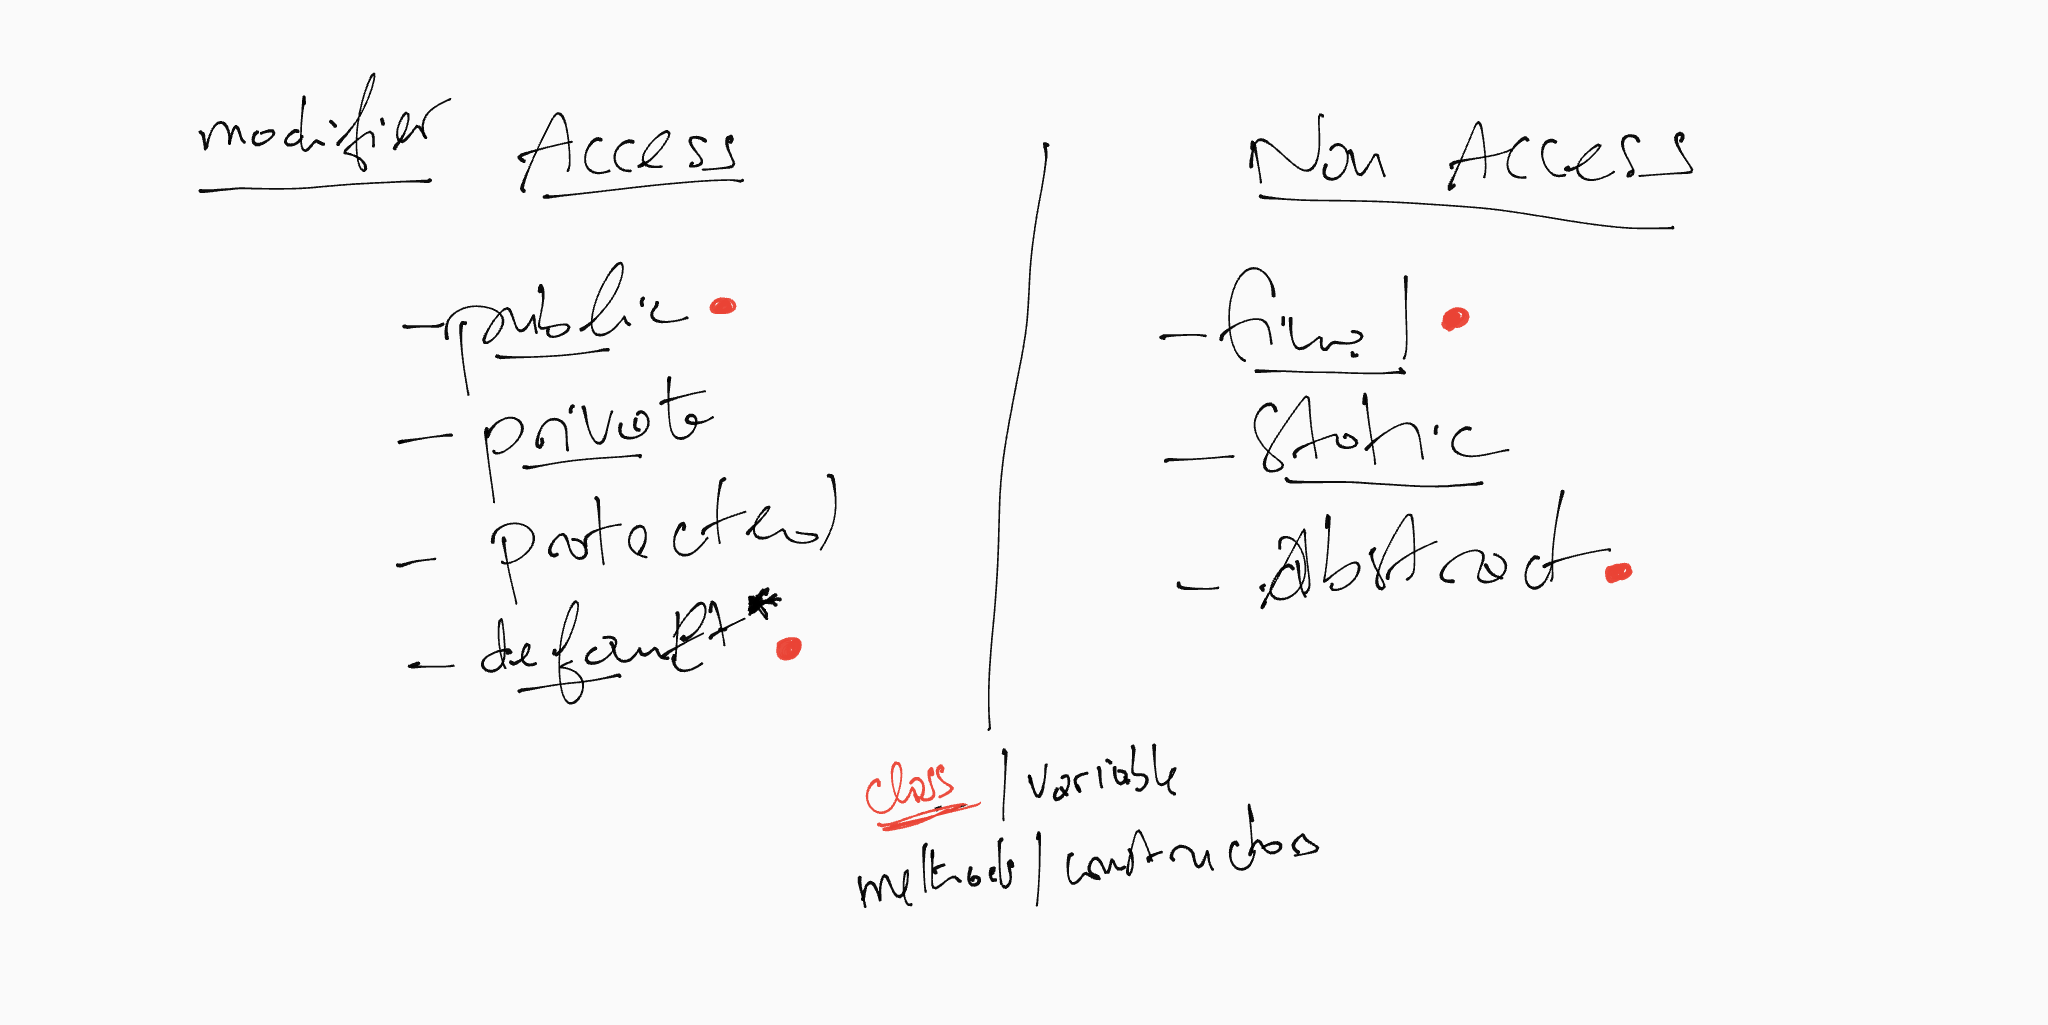 modifier Access
- public
- private
- protected
- default*
Non Access
- final
- static
- Abstract
class | variable
methods | constructors